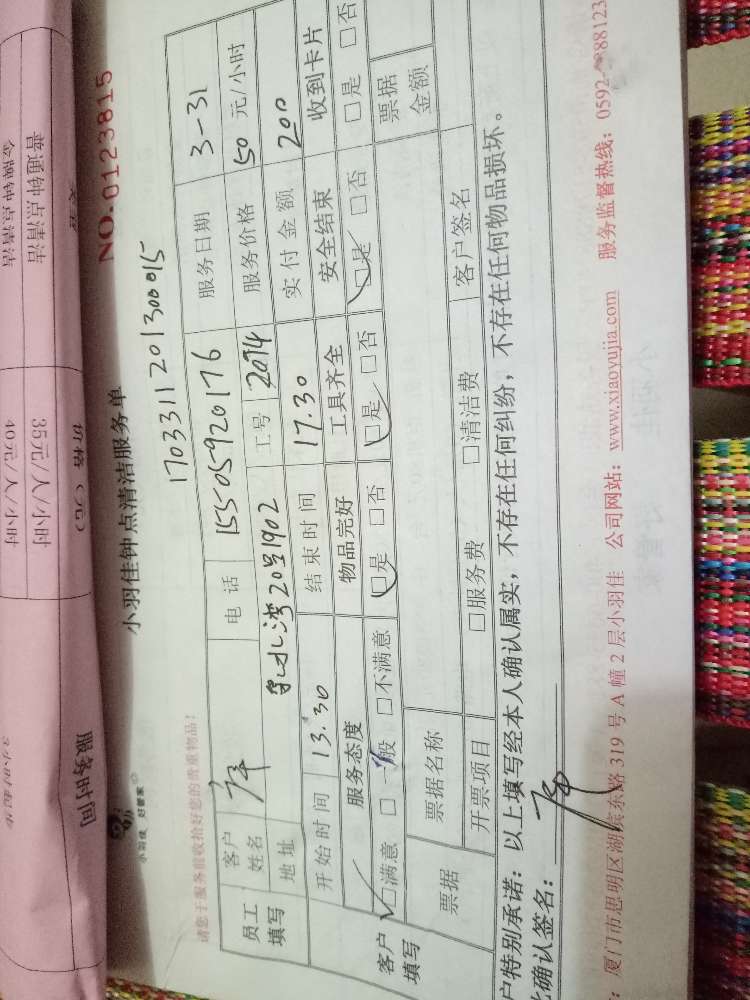 普通钟点清洁
金牌钟点清洁
价格（元）
35元/人/小时
40元/人/小时
服务时间
小羽佳 好管家
小羽佳钟点清洁服务单
NO.0123815
17033112013000015
请您于服务前收拾好您的贵重物品！
员工填写
客户姓名
电话 15505920176
服务日期 3-31
地址 20号1902
工号 2094
服务价格 50 元/小时
开始时间 13.30
结束时间 17.30
实付金额 200
客户填写
服务态度 物品完好 工具齐全 安全结束 收到卡片
□满意 □一般 □不满意 □是 □否 □是 □否 □是 □否 □是 □否
票据
票据名称
票据金额
开票项目 □服务费 □清洁费
客户签名
户特别承诺：以上填写经本人确认属实，不存在任何纠纷，不存在任何物品损坏。
此确认签名：
：厦门市思明区湖滨东路 319 号 A 幢 2 层小羽佳 公司网站：www.xiaoyujia.com 服务监督热线：0592-